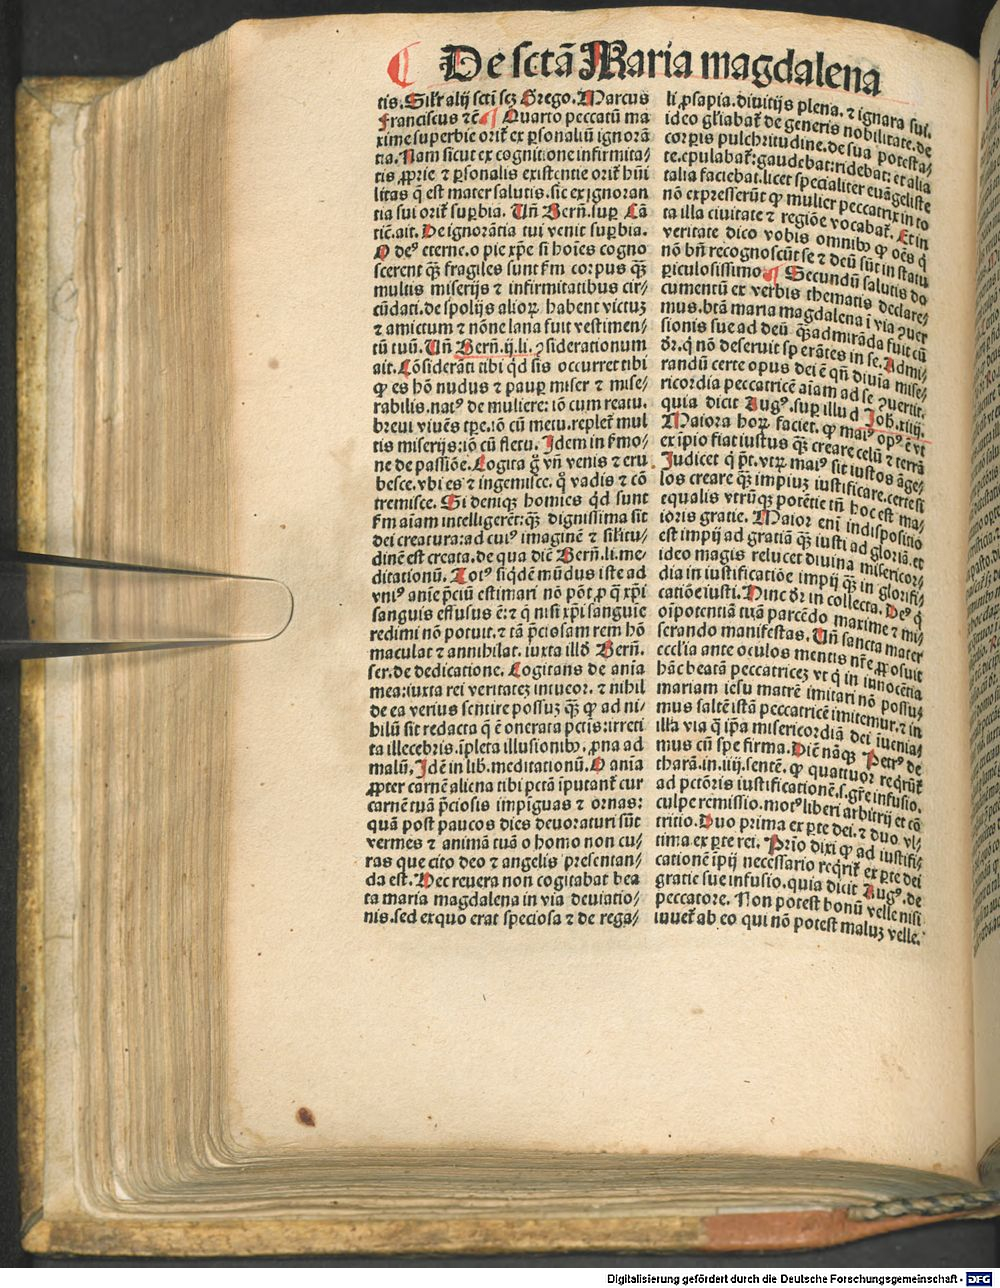 De sctā Maria magdalena
tis. Silr̄ alij scti sez Grego. Marcus
Franciscus ⁊c̄ ¶ Quarto peccatū ma
xime superbie orit̄ ex ꝑsonaliū ignorā
tia. Nam sicut ex cognitione infirmita/
tis ꝓprie ⁊ ꝑsonalis existentie orit̄ hūi
litas q̄ est mater salutis. sic ex ignoran
tia sui orit̄ suꝑbia. Uñ Berñ. suꝑ Cā
tic̄. ait. De ignorātia tui venit suꝑbia.
O deꝰ eterne. o pie xp̄e si hoīes cogno
scerent qꝫ̄ fragiles sunt ẜm corpus qꝫ̄
multis miserijs ⁊ infirmitatibus cir/
cūdati. de spolijs alioꝝ habent victuꝫ
⁊ amictum ⁊ nōne lana fuit vestimen/
tū tuū. Uñ Berñ. ij. li. ꝯsiderationum
ait. Cōsiderāti tibi qd̄ sis occurret tibi
ꝙ es hō nudus ⁊ pauꝑ miser ⁊ mise/
rabilis. natꝰ de muliere: iō cum reatu.
breui viuēs tꝑe. iō cū metu. replet̄ mul
tis miserijs: iō cū fletu. Idem in ẜmo/
ne de passiōe. Cogita g̊ vñ venis ⁊ eru
besce. vbi es ⁊ ingemisce. q̊ vadis ⁊ cō
tremisce. Si deniqꝫ homies qd̄ sunt
ẜm aīam intelligerēt: qꝫ̄ dignissima sit
dei creatura: ad cuiꝰ imaginē ⁊ sil̄itu/
dinē est creata. de qua dic̄ Berñ. li. me/
ditationū. Totꝰ siqdē mūdus iste ad
vniꝰ aīe p̄ciū estimari nō pōt ꝓ q̄ xp̄i
sanguis effusus ē: ⁊ q̄ nisi xp̄i sanguie
redimi nō potuit. ⁊ tā p̄ciosam rem hō
maculat ⁊ annihilat. iuxta illđ Berñ.
ser. de dedicatione. Cogitans de anīa
mea: iuxta rei veritateꝫ intueor. ⁊ nihil
de ea verius sentire possuꝫ qꝫ̄ ꝙ ad ni/
hilū sit redacta q̄ ē onerata pctis: irreti
ta illecebris. īpleta illusionibꝰ, ꝓna ad
malū, Idē in lib. meditationū. O anīa
ꝓpter carnē aliena tibi pctā īputant̄ cur
carnē tuā p̄ciosis impīguas ⁊ ornas:
quā post paucos dies deuoraturi sūt
vermes ⁊ animā tuā o homo non cu/
ras que cito deo ⁊ angelis presentan/
da est. Hec reuera non cogitabat bea
ta maria magdalena in via deuiatio/
nis. sed ex quo erat speciosa ⁊ de rega/
li ꝓsapia. diuitijs plena. ⁊ ignara sui.
ideo gl̄iabat̄ de generis nobilitate. de
corꝑis pulchritudine. de sua potesta/
te. epulabat̄: gaudebat: ridebat: et alia
talia faciebat. licet specialiter euāgeliste
nō expresserūt ꝙ mulier peccatrix in to
ta illa ciuitate ⁊ regiōe vocabat̄. Et in
veritate dico vobis omnibꝰ ꝙ oēs q̄
nō bñ recognoscūt se ⁊ deū sūt in statu
ꝑiculosissimo ¶ Secundū salutis do
cumentū ex verbis thematis declare/
mus. btā maria magdalena ī via ꝯuer
sionis sue ad deū qꝫ̄ admirāda fuit cū
dr̄. q̄ nō deseruit sperātes in se. Admi/
randū certe opus dei ē qñ diuīa mise/
ricordia peccatricē aīam ad se ꝯuertit.
quia dicit Augꝰ. suꝑ illud Joh. xiiij.
Maiora hoꝝ faciet. ꝙ maiꝰ opꝰ ē vt
ex īpio fiat iustus qꝫ̄ creare celū ⁊ terrā
Judicet q̄ pt̄. vtꝝ maiꝰ sit iustos āge/
los creare qꝫ̄ impiuꝫ iustificare. certe si
equalis vtrūqꝫ potētie tñ hoc est ma/
ioris gratie. Maior enī indispositio
est impij ad gratiā qꝫ̄ iusti ad gloriā. et
ideo magis relucet diuina misericor/
dia in iustificatiōe impij qꝫ̄ in glorifi/
catiōe iusti. Hinc dr̄ in collecta. Deꝰ q̄
oīpotentiā tuā parcēdo maxime ⁊ mi/
serando manifestas. Uñ sancta mater
ecclīa ante oculos mentis nr̄e ꝓposuit
hāc beatā peccatriceꝫ vt q̄ in inocētia
mariam iesu matrē imitari nō possu/
mus saltē istā peccatricē imitemur. ⁊ in
illa via q̄ ip̄a misericordiā dei īuenia/
mus cū spe firma. Dic̄ nāqꝫ Petrꝰ de
tharā. in. iiij. sentē. ꝙ quattuor reqrūt̄
ad pctōris iustificationē. s. gr̄e infusio.
culpe remissio. motꝰ liberi arbitrij et cō
tritio. Duo prima ex ꝑte dei. ⁊ duo vl/
tima ex ꝑte rei. Prīo dixi ꝙ ad iustifi/
cationē īpij necessario reqrit̄ ex ꝑte dei
gratie sue infusio. quia dicit Augꝰ. de
peccatore. Non potest bonū velle nisi
iuuet̄ ab eo qui nō potest maluꝫ velle.
Digitalisierung gefördert durch die Deutsche Forschungsgemeinschaft - DFG